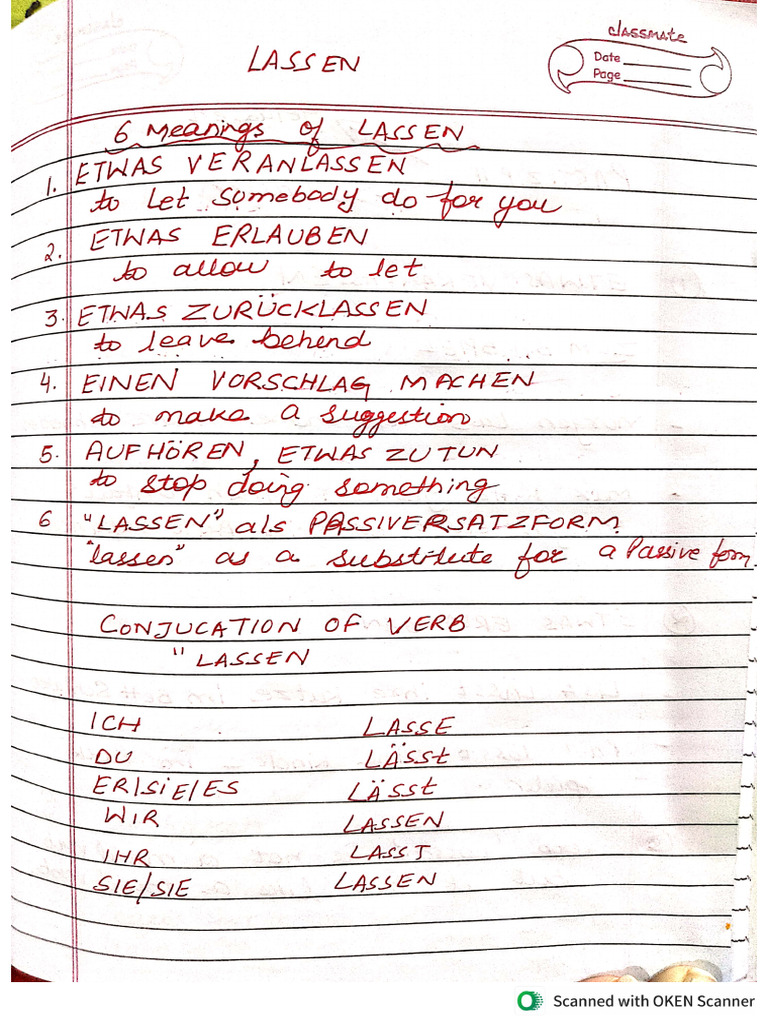 classmate
Date
Page
LASSEN
6 Meanings of LASSEN
1. ETWAS VERANLASSEN
to let somebody do for you
2. ETWAS ERLAUBEN
to allow to let
3. ETWAS ZURÜCKLASSEN
to leave behend
4. EINEN VORSCHLAG MACHEN
to make a suggestion
5. AUFHÖREN, ETWAS ZU TUN
to stop doing something
6 "LASSEN" als PASSIVERSATZFORM
"lassen" as a substitute for a Passive form
CONJUCATION OF VERB
"LASSEN
ICH LASSE
DU LÄSSt
ER/SIE/ES LÄSSt
WIR LASSEN
IHR LASST
SIE/SIE LASSEN
Scanned with OKEN Scanner